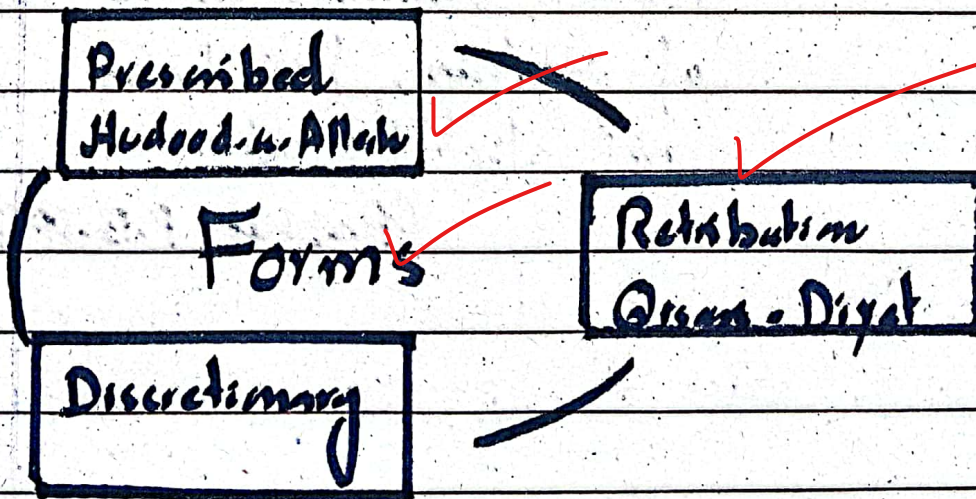 Prescribed
Hudood-u-Allah
Forms
Retribution
Qisas - Diyat
Discretionary